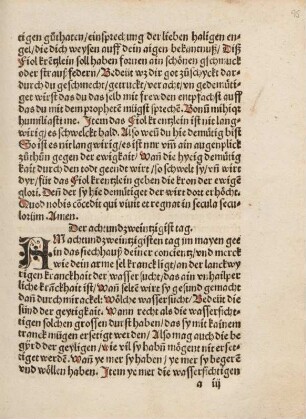 tigen gůthaten/einsprechung der lieben haligen en-
gel/die dich weysen auff dein aigen bekantnuß/Diß
Fiol krentzlein soll haben fornen ain schönen gschmuck
oder strauß federn/Bedeüt wz dir got zůschyckt dar-
durch du geschmecht/getruckt/veracht/vn gedemü-
tiget wirst das du das selb mit frewden entpfachst auff
das du mit dem propheten mügst sprechē. Bonū mihi qt
humiliasti me. Item das Fiol krentzlein ist nit lang-
wirig/es schwelckt bald. Also weñ du hie demütig bist
So ist es nit langwirig/es ist nur vm̄ ain augenplick
zůthůn gegen der ewigkait/Wañ die hyeig demütig
kait durch den todt geendt wirt/so schwelckt sy/vñ wirt
dyr/für das Fiol krentzlein geben die kron der ewigē
glori. Den der sy hie demütiget der wirt dort erhöcht.
Quod nobis cōcedit qui viuit et regnat in secula secu-
lorum. Amen.
Der achtundzweintzigist tag.
AM achtundzweintzigisten tag im mayen gee
ain in das siechhauß deiner conciētz/vnd merck
wie dein arme sel kranck ligt/an der lanckwy
rigen kranckhait der wasser sucht/das ain vnhailper
liche kranckhait ist/Wañ selten wirt sy gesund gemacht
dañ durch mirackel: Wölche wassersucht/Bedeüt die
sünd der geytigkait. Wann recht als die wasserfich-
tigen solchen grossen durst haben/das sy mit kainem
tranck mügen ersetiget werden/Also mag auch die be
gyrd der geytigen/wie vil sy habñ mögen nit ersetti-
get werden. Wañ ye mer sy haben/ye mer sy begeren
vnd wöllen haben. Item ye mer die wassersichtigen
a iij